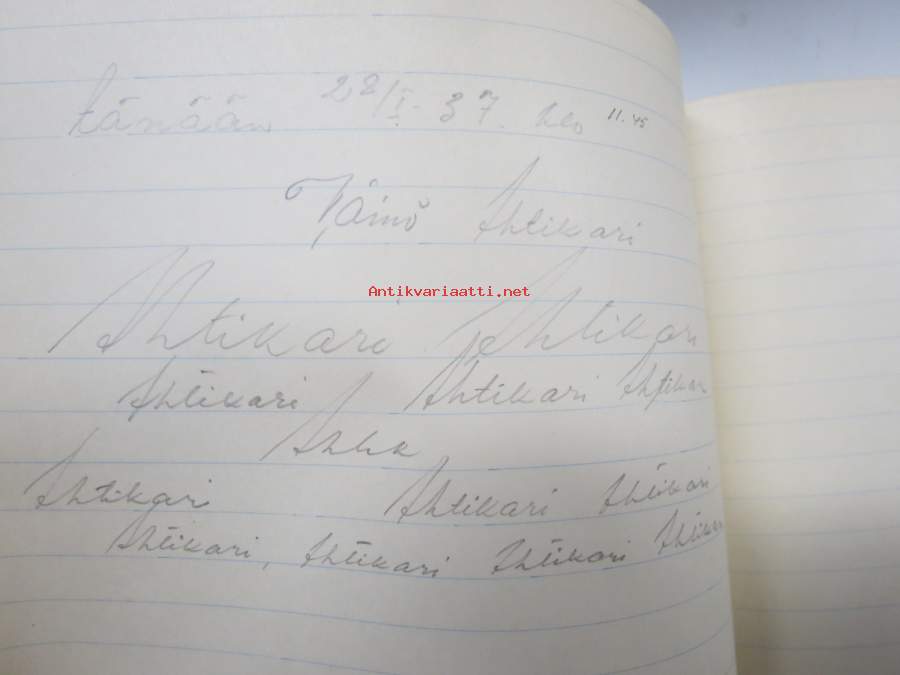 tänään 28/I. 37. klo 11.45
Väinö Ahtikari
Antikvariaatti.net
Ahtikari Ahtikari
Ahtikari Ahtikari Ahtikari
Ahtik
Ahtikari Ahtikari Ahtikari
Ahtikari, Ahtikari Ahtikari Ahtikari